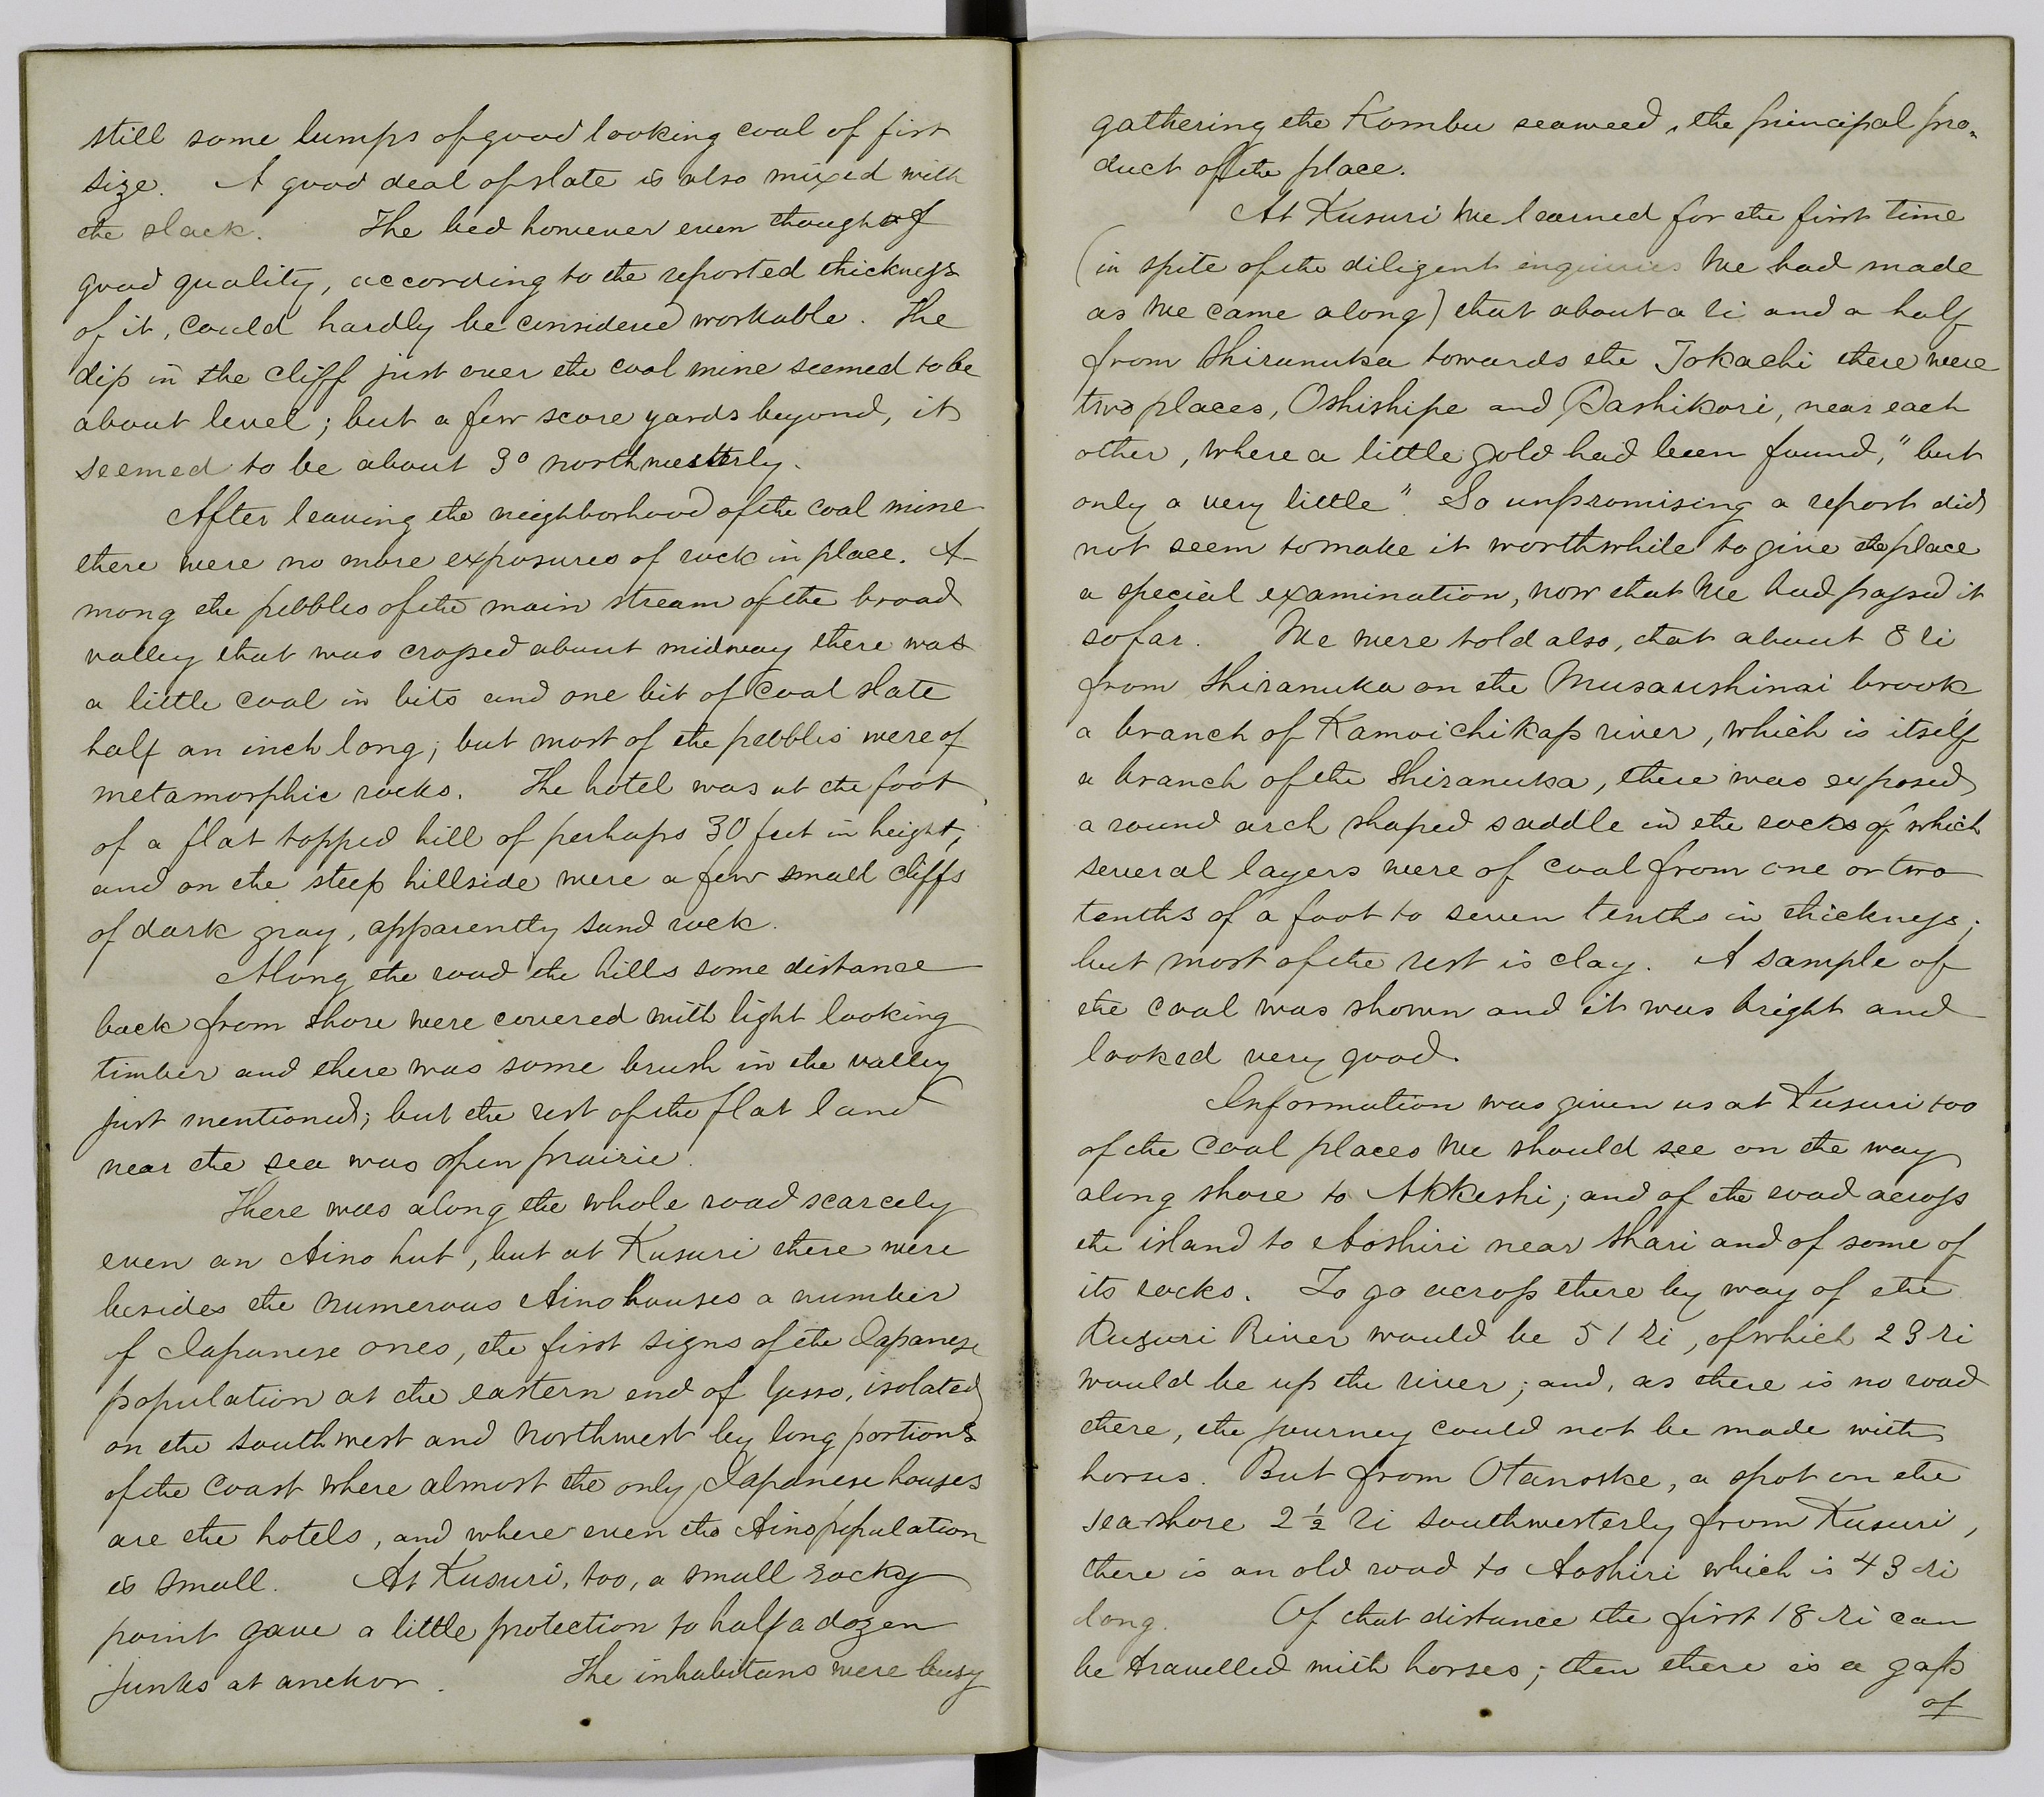 still some lumps of good looking coal of fist
size. A good deal of slate is also mixed with
the slack. The bed however even though of
good quality, according to the reported thickness
of it, could hardly be considered workable. The
dip in the cliff just over the coal mine seemed to be
about level; but a few score yards beyond, it
seemed to be about 3° northwesterly.
After leaving the neighborhood of the coal mine
there were no more exposures of rock in place. A-
mong the pebbles of the main stream of the broad
valley that was crossed about midway there was
a little coal in bits and one bit of coal slate
half an inch long; but most of the pebbles were of
metamorphic rocks. The hotel was at the foot
of a flat topped hill of perhaps 30 feet in height,
and on the steep hillside were a few small cliffs
of dark gray, apparently sand rock.
Along the road the hills some distance
back from shore were covered with light looking
timber and there was some brush in the valley
just mentioned; but the rest of the flat land
near the sea was open prairie.
There was along the whole road scarcely
even an Aino hut, but at Kusuri there were
besides the numerous Aino houses a number
of Japanese ones, the first signs of the Japanese
population at the eastern end of Yesso, isolated
on the southwest and northwest by long portions
of the coast where almost the only Japanese houses
are the hotels, and where even the Aino population
is small. At Kusuri, too, a small rocky
point gave a little protection to half a dozen
junks at anchor. The inhabitans were busy
gathering the Kombu seaweed, the principal pro-
duct of the place.
At Kusuri we learned for the first time
(in spite of the diligent inquiries we had made
as we came along) that about a ri and a half
from Shiranuka towards the Tokachi there were
two places, Oshishipe and Pashikori, near each
other, where a little gold had been found, "but
only a very little". So unpromising a report did
not seem to make it worthwhile to give the place
a special examination, now that we had passed it
so far. We were told also, that about 8 ri
from Shiranuka on the Musaushinai brook
a branch of Kamoichikap river, which is itself
a branch of the Shiranuka, there was exposed
a round arch shaped saddle in the rocks of which
several layers were of coal from one or two
tenths of a foot to seven tenths in thickness;
but most of the rest is clay. A sample of
the coal was shown and it was bright and
looked very good.
Information was given us at Kusuri too
of the coal places we should see on the way
along shore to Akkeshi; and of the road across
the island to Aoshiri near Shari and of some of
its rocks. To go across there by way of the
Kusuri River would be 51 ri, of which 23 ri
would be up the river; and, as there is no road
there, the journey could not be made with
horses. But from Otanoske, a spot on the
seashore 2½ ri southwesterly from Kusuri,
there is an old road to Aoshiri which is 43 ri
long. Of that distance the first 18 ri can
be travelled with horses; then there is a gap
of